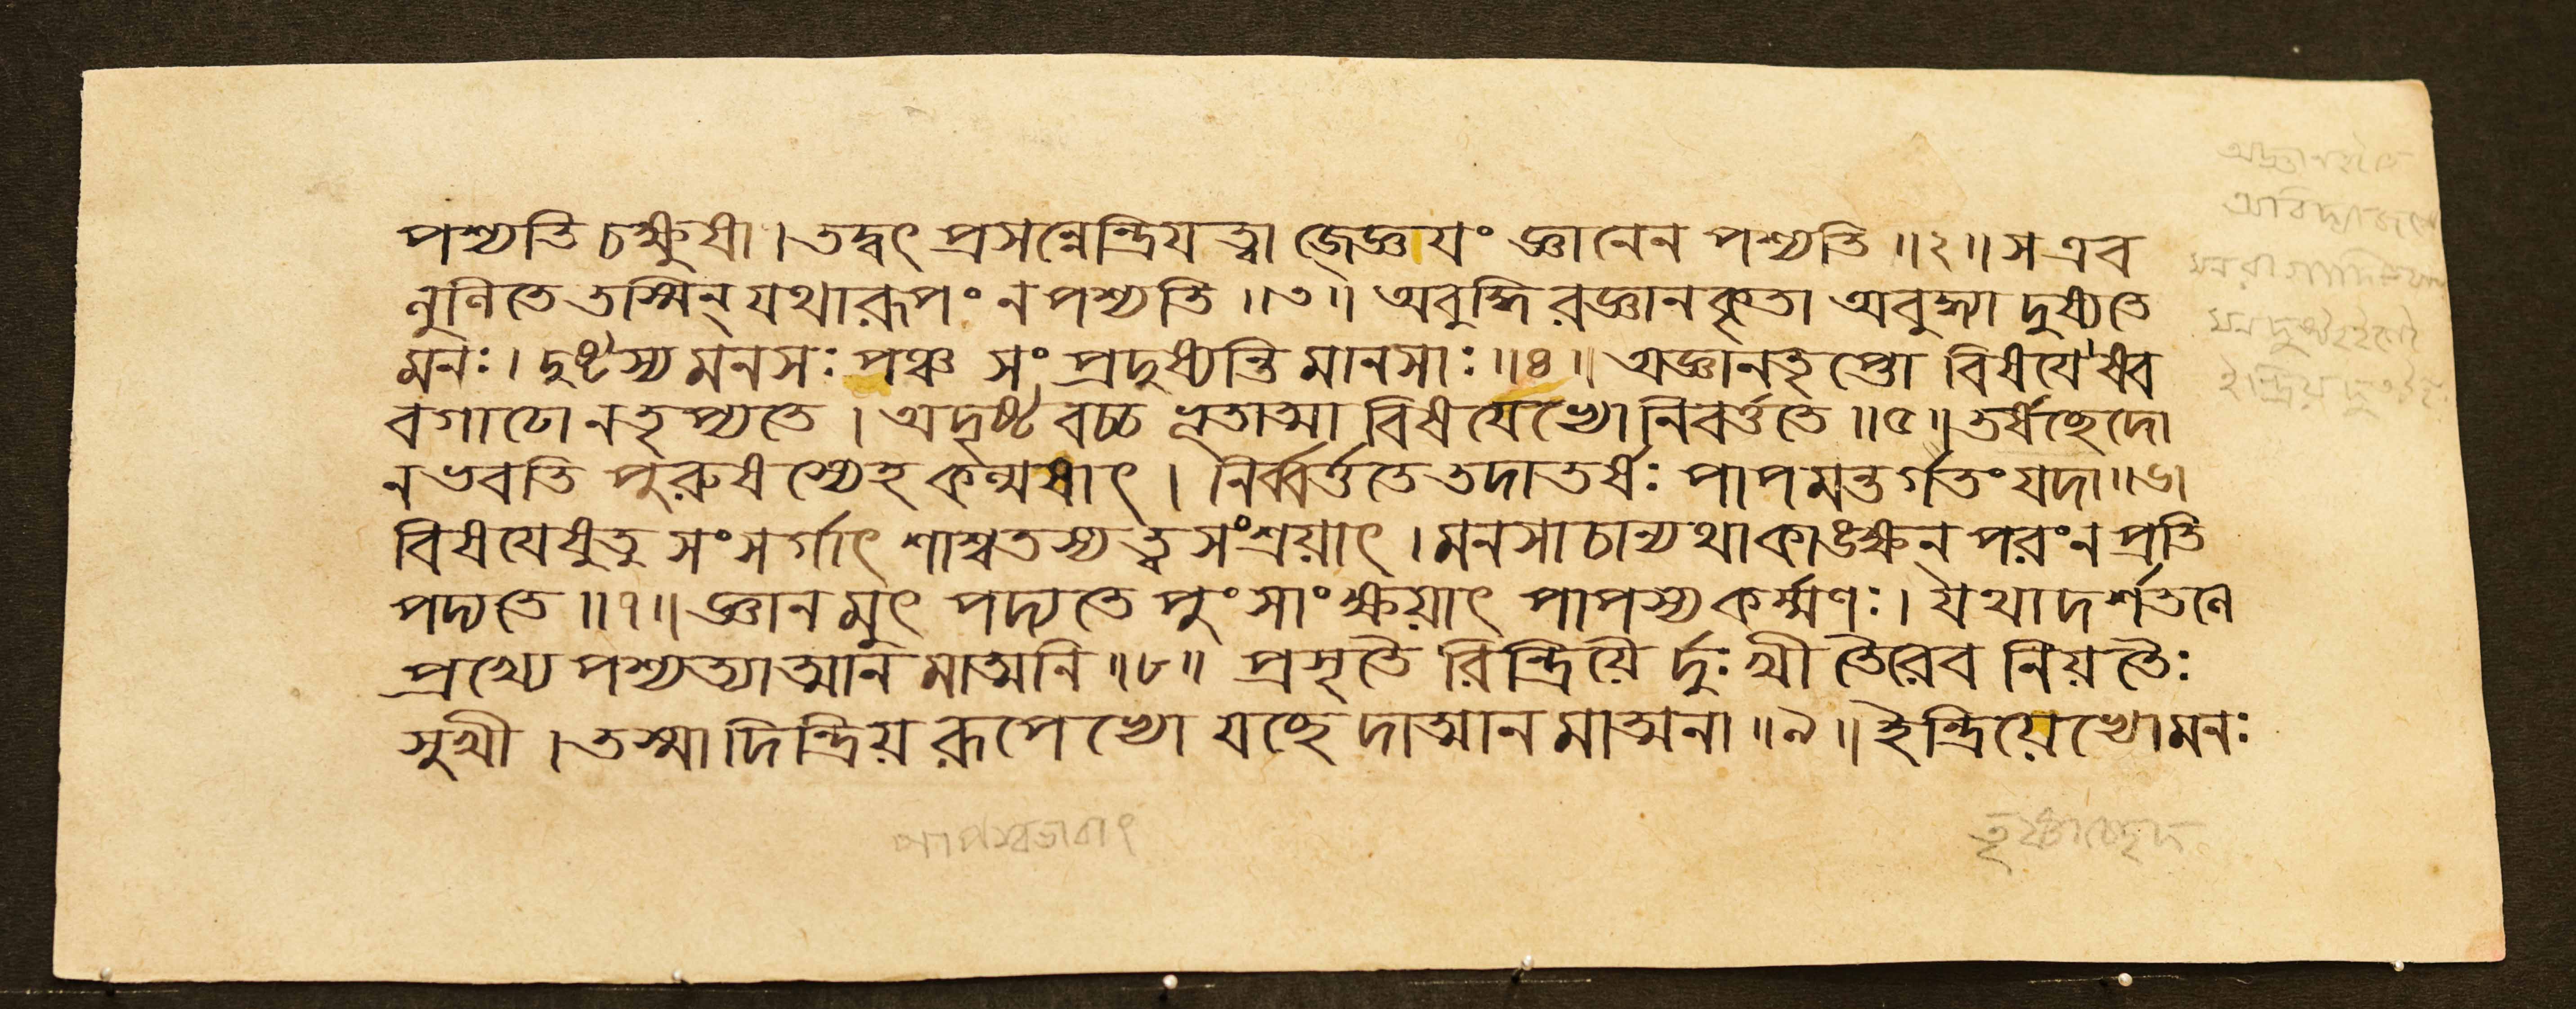 পশ্যতি চক্ষুষা । তদ্বৎ প্রসন্নেন্দ্রিয়ত্বা জ্জ্ঞেয়ং জ্ঞানেন পশ্যতি ॥২॥ স এব
লুলিতে তস্মিন্ যথা রূপং ন পশ্যতি ॥৩॥ অবুদ্ধি রজ্ঞানকৃতা অবুদ্ধ্যা দুষ্যতে
মনঃ । দুষ্টস্য মনসঃ পঞ্চ সং প্রদুষ্যন্তি মানসাঃ ॥৪॥ অজ্ঞানতৃপ্তো বিষয়েষ্ব
বগাঢো ন তৃপ্যতে । অদৃষ্টবচ্চ ভূতাত্মা বিষয়েভ্যো নিবর্ত্ততে ॥৫॥ তর্ষচ্ছেদো
ন ভবতি পুরুষস্যেহ কল্মষাৎ । নির্ব্বর্ত্ততে তদা তর্ষঃ পাপমন্তর্গতং যদা ॥৬॥
বিষয়েষু তু সংসর্গাৎ শাশ্বতস্য তু সংশ্রয়াৎ । মনসা চান্যথা কাঙ্ক্ষন পরং ন প্রতি
পদ্যতে ॥৭॥ জ্ঞানমুৎ পদ্যতে পুংসাং ক্ষয়াৎ পাপস্য কর্ম্মণঃ । যথাদর্শতলে
প্রখ্যে পশ্যত্যাত্মান মাত্মনি ॥৮॥ প্রসৃতৈ রিন্দ্রিয়ৈ র্দুঃখী তৈরেব নিয়তৈঃ
সুখী । তস্মা দিন্দ্রিয় রূপেভ্যো যচ্ছে দাত্মান মাত্মনা ॥৯॥ ইন্দ্রিয়েভ্যো মনঃ